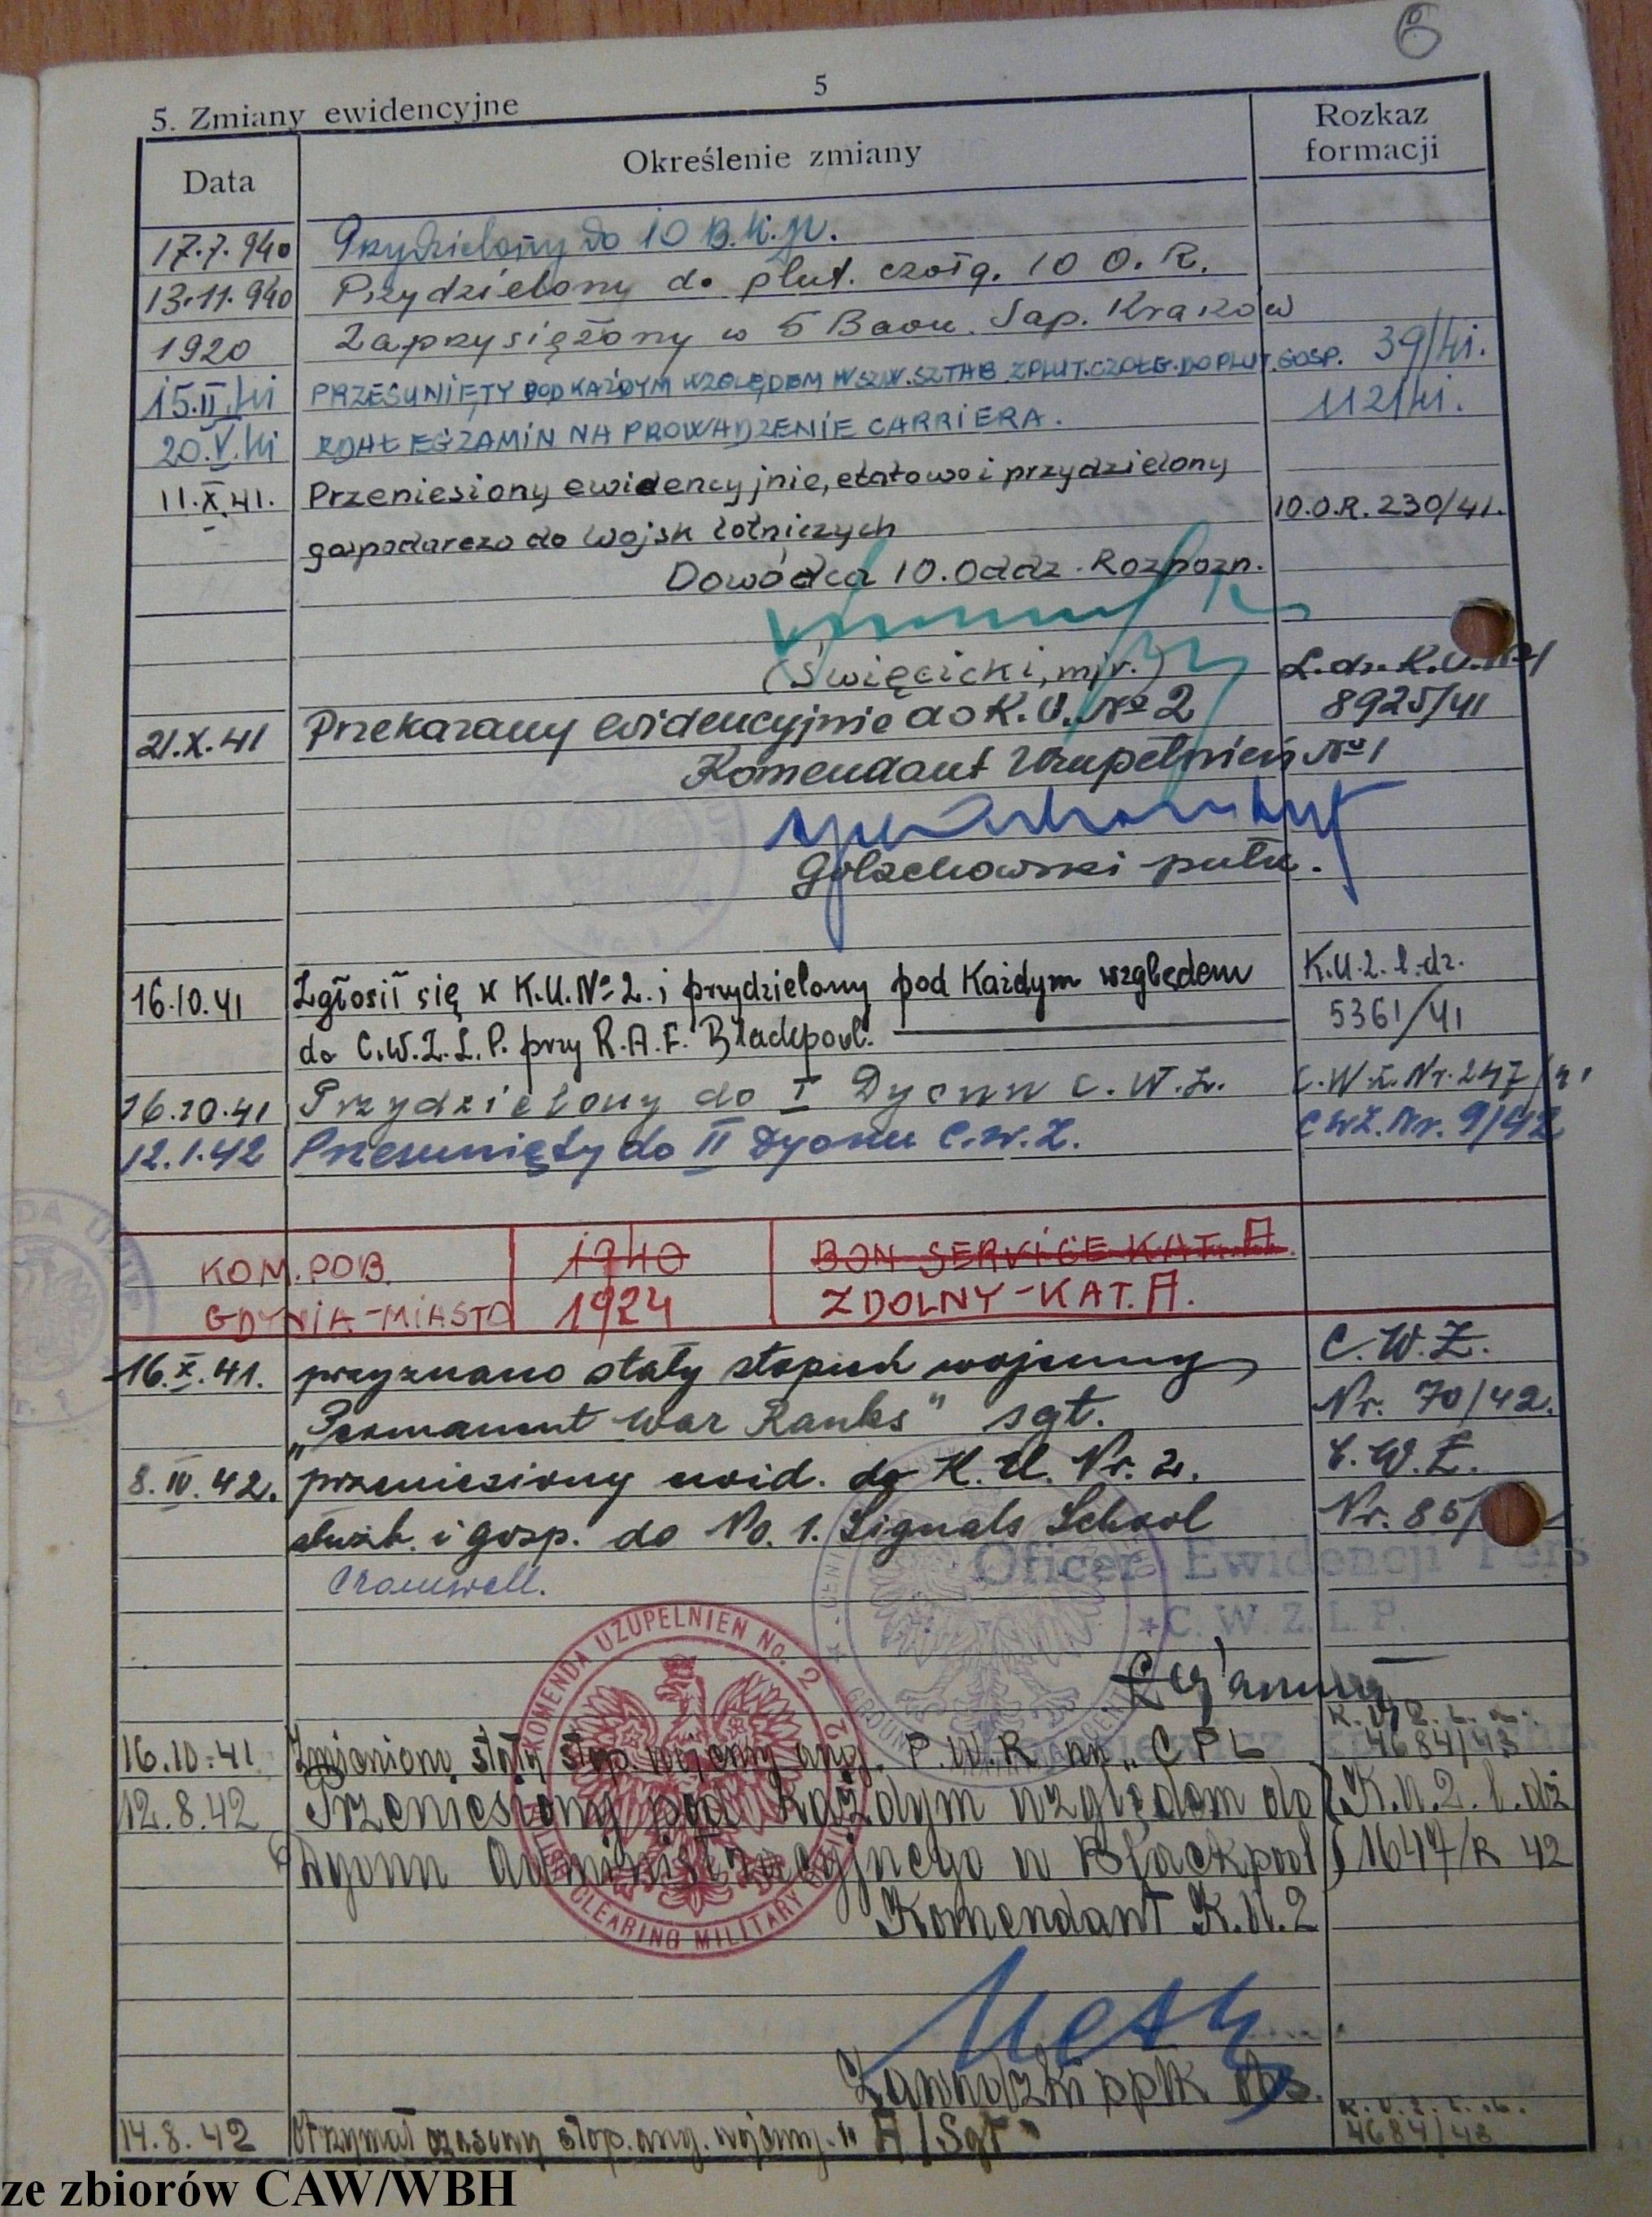 6
5
5. Zmiany ewidencyjne
Data Określenie zmiany Rozkaz formacji
17.7.940 Przydzielony do 10 B.K.
13.11.940 Przydzielony do plut. czołg. 10 O.R.
1920 Zaprzysiężony w 5 Baou. Sap. Kraków
15.II.41 PRZESUNIĘTY POD KAŻDYM WZGLĘDEM W SZW. SZTAB. Z PLUT. CZOŁG. DO PLUT. GOSP. 39/41.
20.V.41 ZDAŁ EGZAMIN NA PROWADZENIE CARRIERA. 112/41.
11.X.41. Przeniesiony ewidencyjnie, etatowo i przydzielony
gospodarczo do Wojsk Lotniczych 10.O.R. 230/41.
Dowódca 10. Oddz. Rozpozn.
(Święcicki, mjr.) L.dz. K.U.
21.X.41 Przekazany ewidencyjnie do K.U. No 2 8925/41
Komendant Uzupełnień No 1
Golachowski pułk.
16.10.41 Zgłosił się w K.U. No 2. i przydzielony pod każdym względem K.U.2. l.dz.
do C.W.Z.L.P. przy R.A.F. Blackpool. 5361/41
16.10.41 Przydzielony do I Dyonu C.W.Z. C.W.Z. Nr. 247/41
12.1.42 Przesunięty do II Dyonu C.W.Z. CWZ. Nr. 9/42
KOM. POB. 1940 BON SERVICE KAT. A.
GDYNIA-MIASTO 1924 ZDOLNY-KAT. A.
16.X.41. przyznano stały stopień wojenny C.W.Z.
„Permament War Ranks" sgt. Nr. 70/42.
8.IV.42. przeniesiony ewid. do K.U. Nr. 2. C.W.Z.
służb. i gosp. do No. 1. Signals School Nr. 85/
Cranwell.
Oficer Ewidencji Pers
C.W.Z.L.P.
KOMENDA UZUPEŁNIEN No. 2
CLEARING MILITARY
16.10.41 Zmieniony stały stop. wojenny ang. P.W.R na „CPL 4684/43
12.8.42 Przeniesiony pod każdym względem do K.U.2. l.dz
Dyonu Administracyjnego w Blackpool 1647/R 42
Komendant K.U.2
ppłk.
14.8.42 Otrzymał czasowy stop. ang. wojenny. „A/Sgt" 4684/43
ze zbiorów CAW/WBH